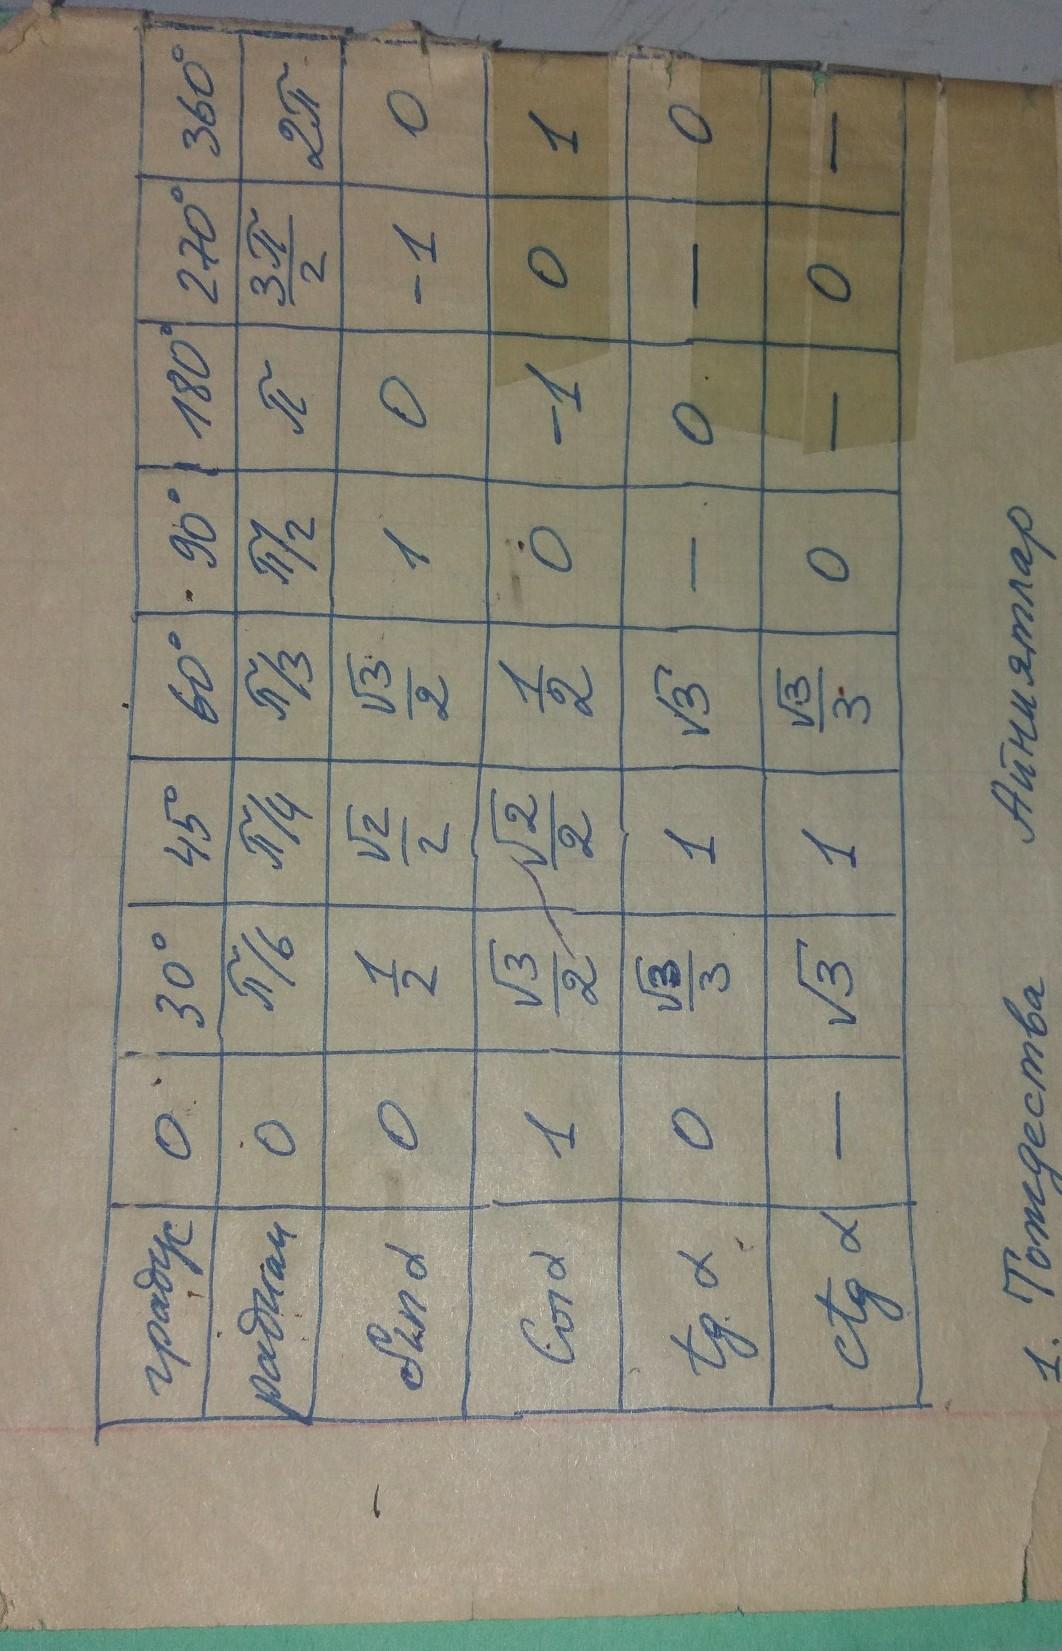 градус 0 30° 45° 60° 90° 180° 270° 360°
радиан 0 π/6 π/4 π/3 π/2 π 3π/2 2π
Sin α 0 1/2 √2/2 √3/2 1 0 -1 0
Cos α 1 √3/2 √2/2 1/2 0 -1 0 1
tg α 0 √3/3 1 √3 — 0 — 0
ctg α — √3 1 √3/3 0 — 0 —
1. Тождества Айниятлар